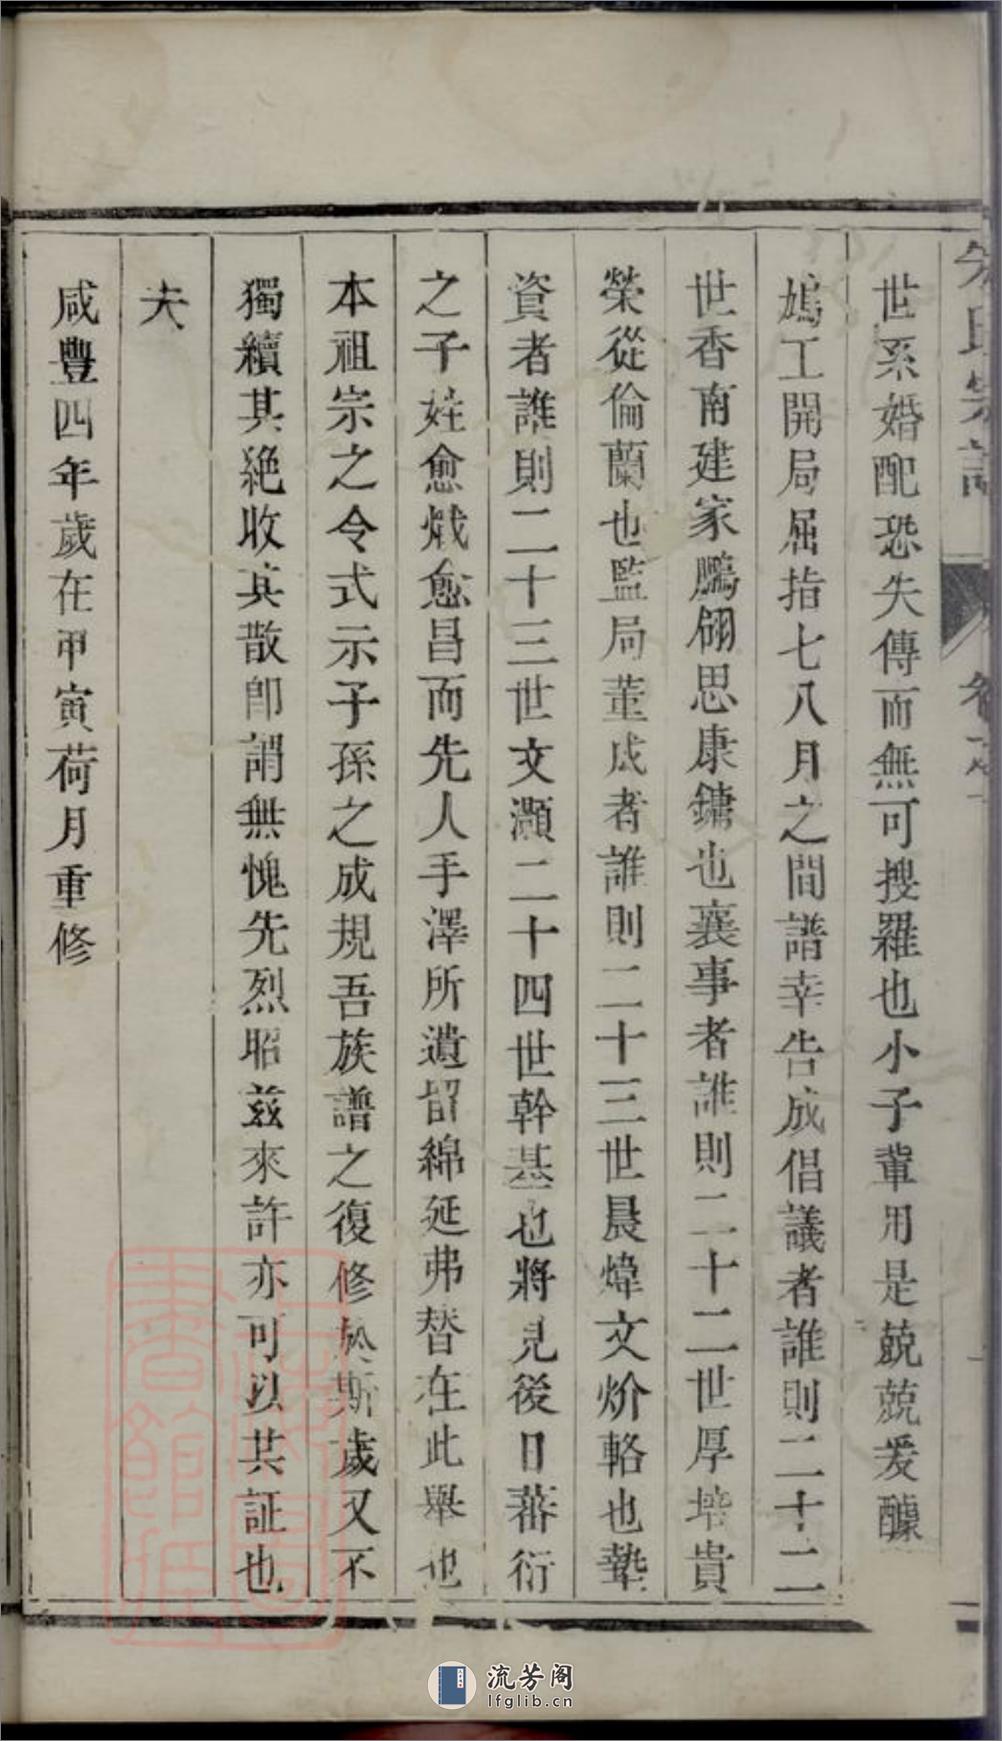 世系婚配恐失傳而無可搜羅也小子輩用是兢兢爰醵
鳩工開局屈指七八月之間譜幸告成倡議者誰則二十二
世香南建家鵬翩思康鏞也襄事者誰則二十二世厚培貴
榮從倫蘭也監局董成者誰則二十三世晨煒文炌輅也墊
資者誰則二十三世文灝二十四世幹基也將見後日蕃衍
之子姓愈熾愈昌而先人手澤所遺留綿延弗替在此舉也
本祖宗之令式示子孫之成規吾族譜之復修於斯歲又不
獨續其絶收其散卽謂無愧先烈昭茲來許亦可以共証也
夫
咸豐四年歲在甲寅荷月重修
上海圖書館藏
流芳阁
lfglib.cn